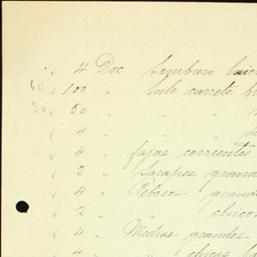 √ 4 Doc Sombrero
60 √ 100 " hilo carrete
30 √ 50 " " "
√ 4 " " "
√ 4 " fajas corrientes
√ 2 " Sarapes grand
√ 4 " Rebosos grand
√ 2 " " chicos
√ 4 " Medias grandes
√ 4 " " chicas